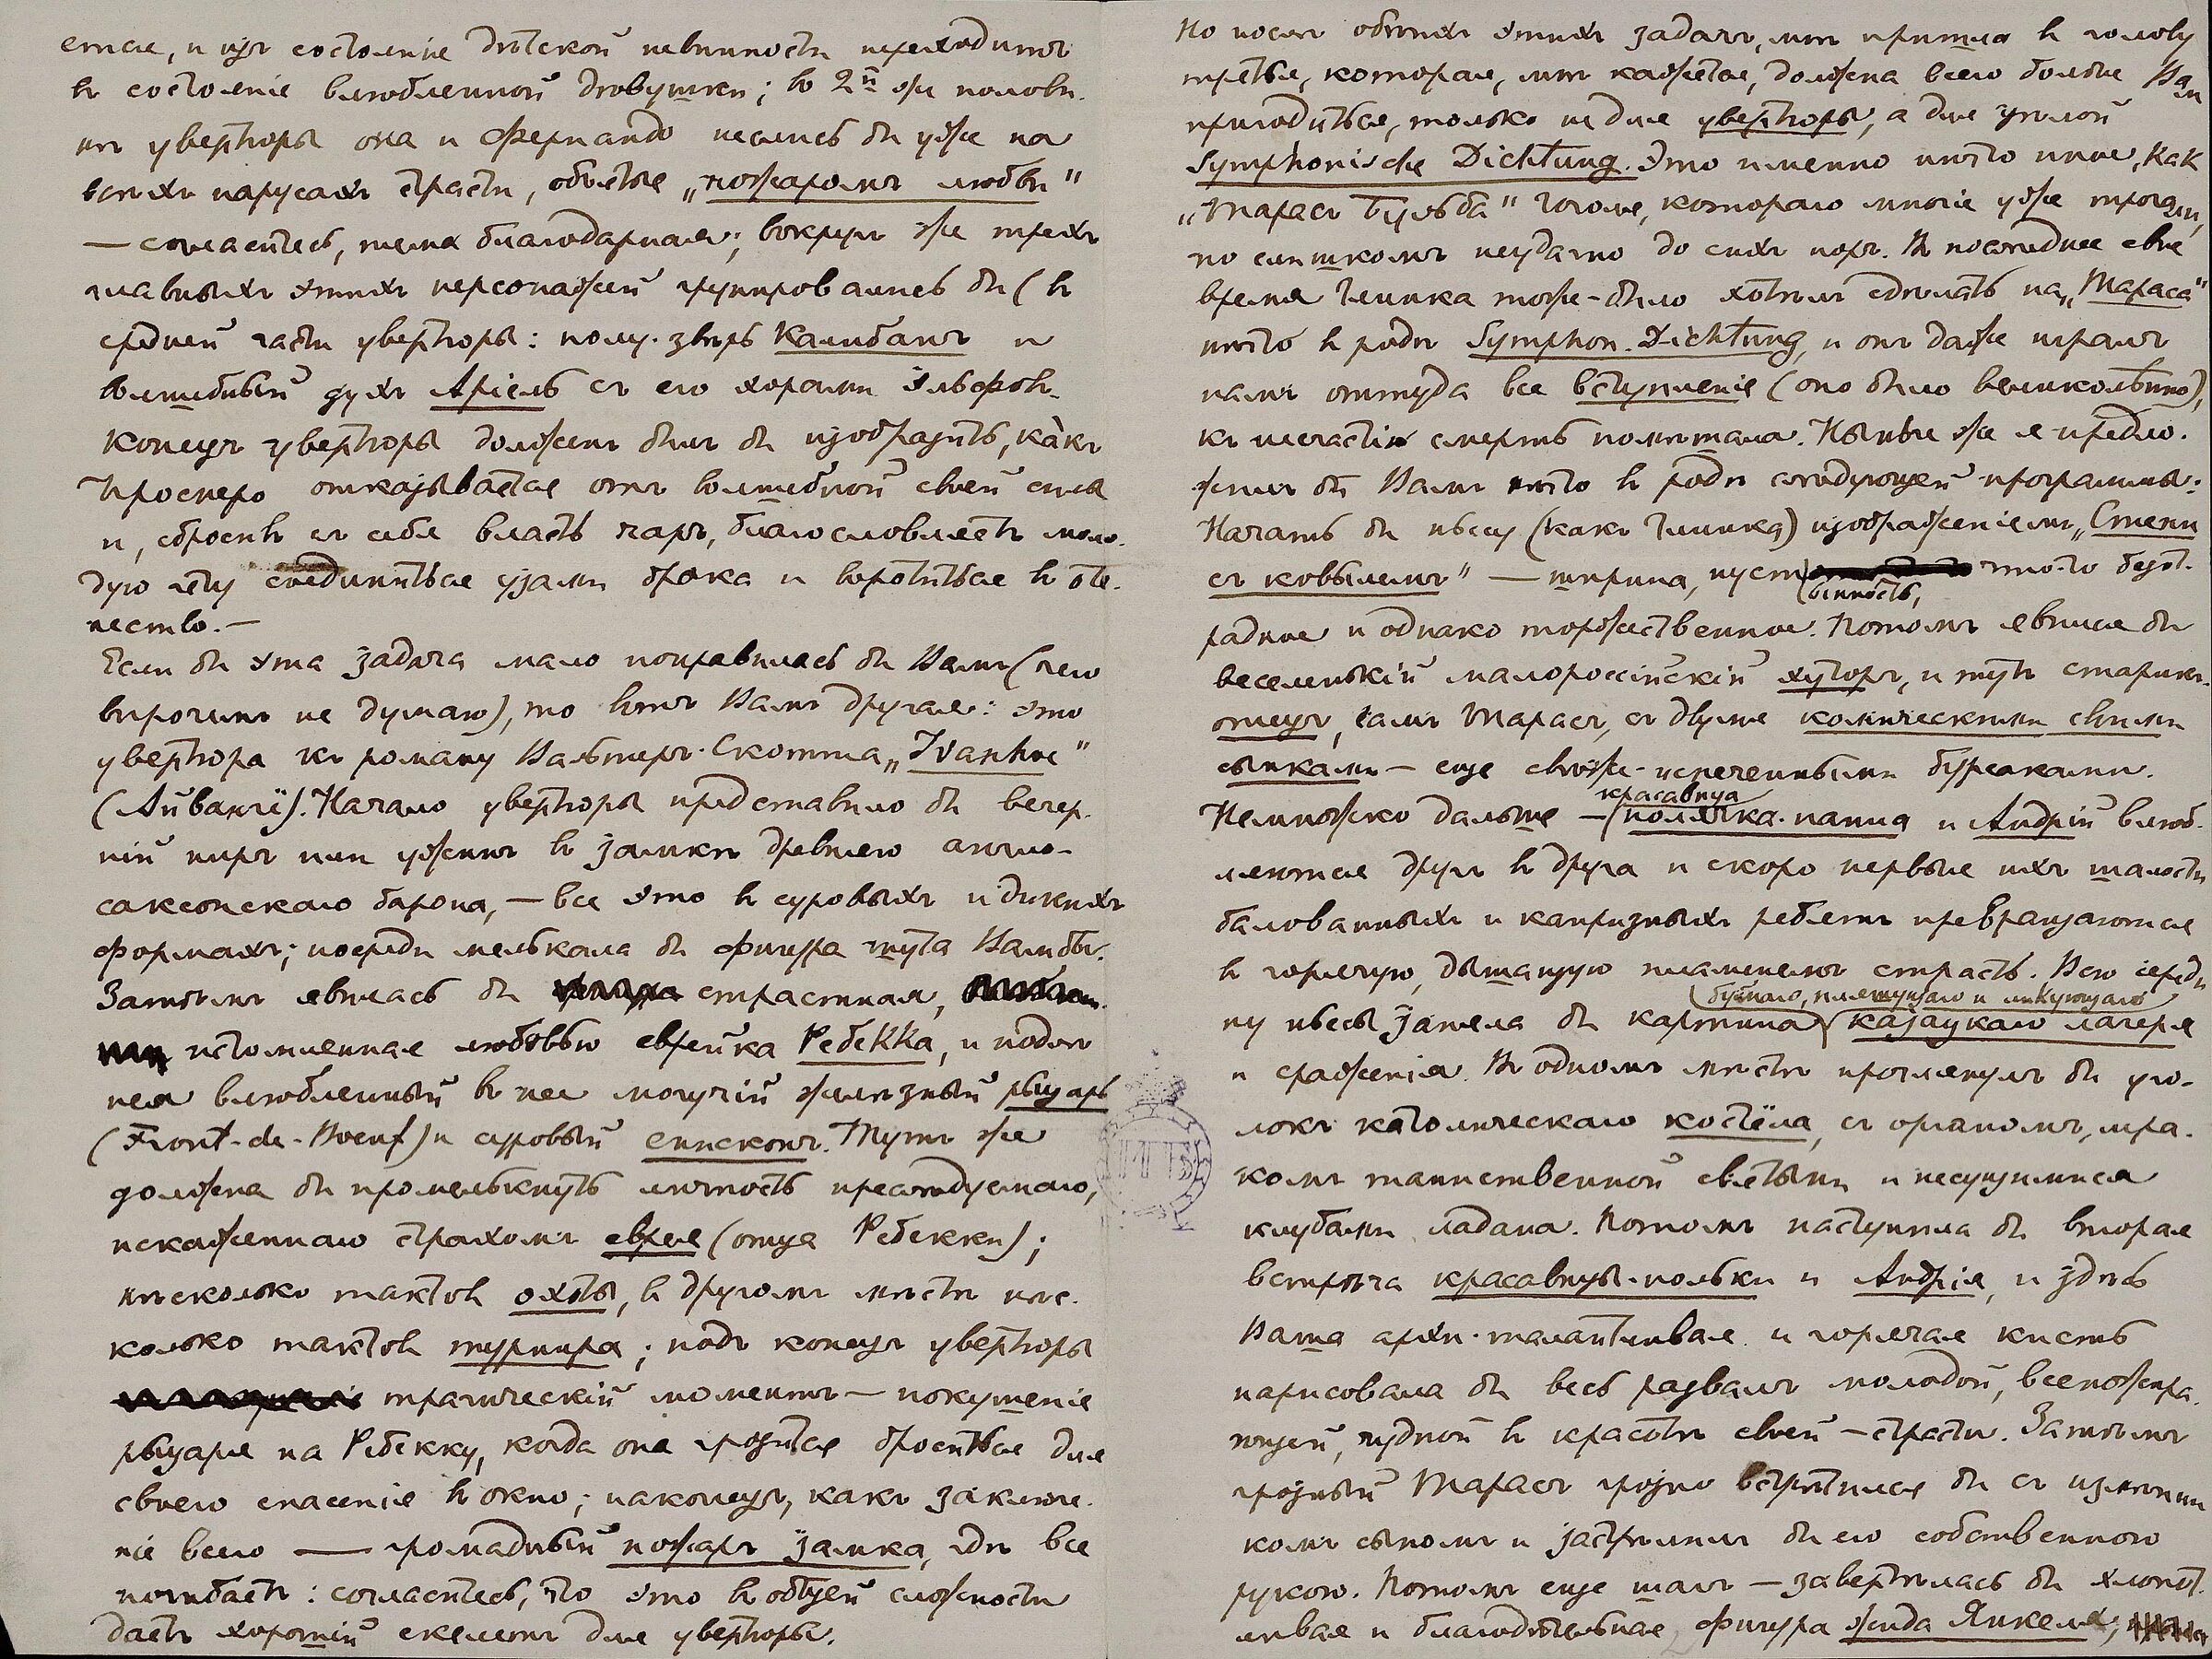 ется, и изъ состоянiя дѣтской невинности переходитъ
въ состоянiе влюбленной дѣвушки; во 2й же полови-
нѣ увертюры она и Фернандо неслись бы уже на
всѣхъ парусахъ страсти, объятые „пожаромъ любви"
— согласитесь, тема благодарная; вокругъ же трехъ
главныхъ этихъ персонажей группировались бы (въ
средней части увертюры: полу-звѣрь Калибанъ и
волшебный духъ Арiель съ его хорами эльфовъ.
Конецъ увертюры долженъ былъ бы изобразить, какъ
Просперо отказывается отъ волшебной своей силы
и, сбросивъ съ себя власть чаръ, благословляетъ моло-
дую чету соединиться узами брака и воротиться въ оте-
чество.—
Если бы эта задача мало понравилась бы Вамъ (чего
впрочемъ не думаю), то вотъ Вамъ другая: это
увертюра къ роману Вальтеръ-Скотта „Ivanhoe"
(Айвангё). Начало увертюры представило бы вечер-
нiй пиръ или ужинъ въ замкѣ древняго англо-
саксонскаго барона, — все это въ суровыхъ и дикихъ
формахъ; посреди мелькала бы фигура шута Вамбы.
Затѣмъ явилась бы страстная,
истомленная любовью еврейка Ребекка, и подлѣ
нея влюбленный въ нее могучiй желѣзный рыцарь
(Front-de-Boeuf) и суровый епископъ. Тутъ же
должна бы промелькнуть личность преслѣдуемаго,
искаженнаго страхомъ еврея (отца Ребекки);
нѣсколько тактовъ охоты, въ другомъ мѣстѣ нѣс-
колько тактовъ турнира; подъ конецъ увертюры
трагическiй моментъ — покушенiе
рыцаря на Ребекку, когда она грозится броситься для
своего спасенiя въ окно; наконецъ, какъ заключе-
нiе всего — громадный пожаръ замка, гдѣ все
погибаетъ: согласитесь, что это въ общей сложности
даетъ хорошiй скелетъ для увертюры.
Но послѣ обѣихъ этихъ задачъ, мнѣ пришла въ голову
третья, которая, мнѣ кажется, должна всего болѣе Вам
пригодиться, только не для увертюры, а для цѣлой
Symphonische Dichtung. Это именно никто иной, какъ
„Тарасъ Бульба" Гоголя, котораго многiе уже трогали,
но слишкомъ неудачно до сихъ поръ. Въ последнее свое
время Глинка тоже-было хотѣлъ сдѣлать на „Тараса"
нѣчто въ родѣ Symphon. Dichtung, и онъ даже игралъ
намъ оттуда все вступленiе (оно было великолѣпно),
къ несчастiю смерть помѣшала. Нынче же я предло-
жилъ бы Вамъ нѣчто въ родѣ слѣдующей программы:
Начать бы пьесу (какъ Глинка) изображенiемъ „Степи
съ ковылемъ" — ширина, пустынность, что-то безот-
радное и однако торжественное. Потомъ явился бы
веселенькiй малороссiйскiй хуторъ, и тутъ старикъ-
отецъ, самъ Тарасъ, съ двумя комическими своими
сынками — еще свѣже-испеченными бурсаками.
Немножко дальше — красавица полячка-панна и Андрiй влюб-
ляются другъ въ друга и скоро первые ихъ шалости
балованныхъ и капризныхъ ребятъ превращаются
въ горячую, дышащую пламенемъ страсть. Всю середи-
ну пьесы заняла бы картина буйнаго, пляшущаго и ликующаго казацкаго лагеря
и сраженiя. Въ одномъ мѣстѣ проглянулъ бы уго-
локъ католическаго костёла, съ органомъ, мра-
комъ таинственной святыни и несущимися
клубами ладана. Потомъ наступила бы вторая
встрѣча красавицы-польки и Андрiя, и здѣсь
Ваша архи-талантливая и горячая кисть
нарисовала бы весь развалъ молодой, всепожира-
ющей, чудной въ красотѣ своей — страсти. Затѣмъ
грозный Тарасъ грозно встрѣтился бы съ измѣнни-
комъ сыномъ и застрѣлилъ бы его собственною
рукою. Потомъ еще шагъ — завертѣлась бы хлопот-
ливая и благодѣтельная фигура жида Янкеля,